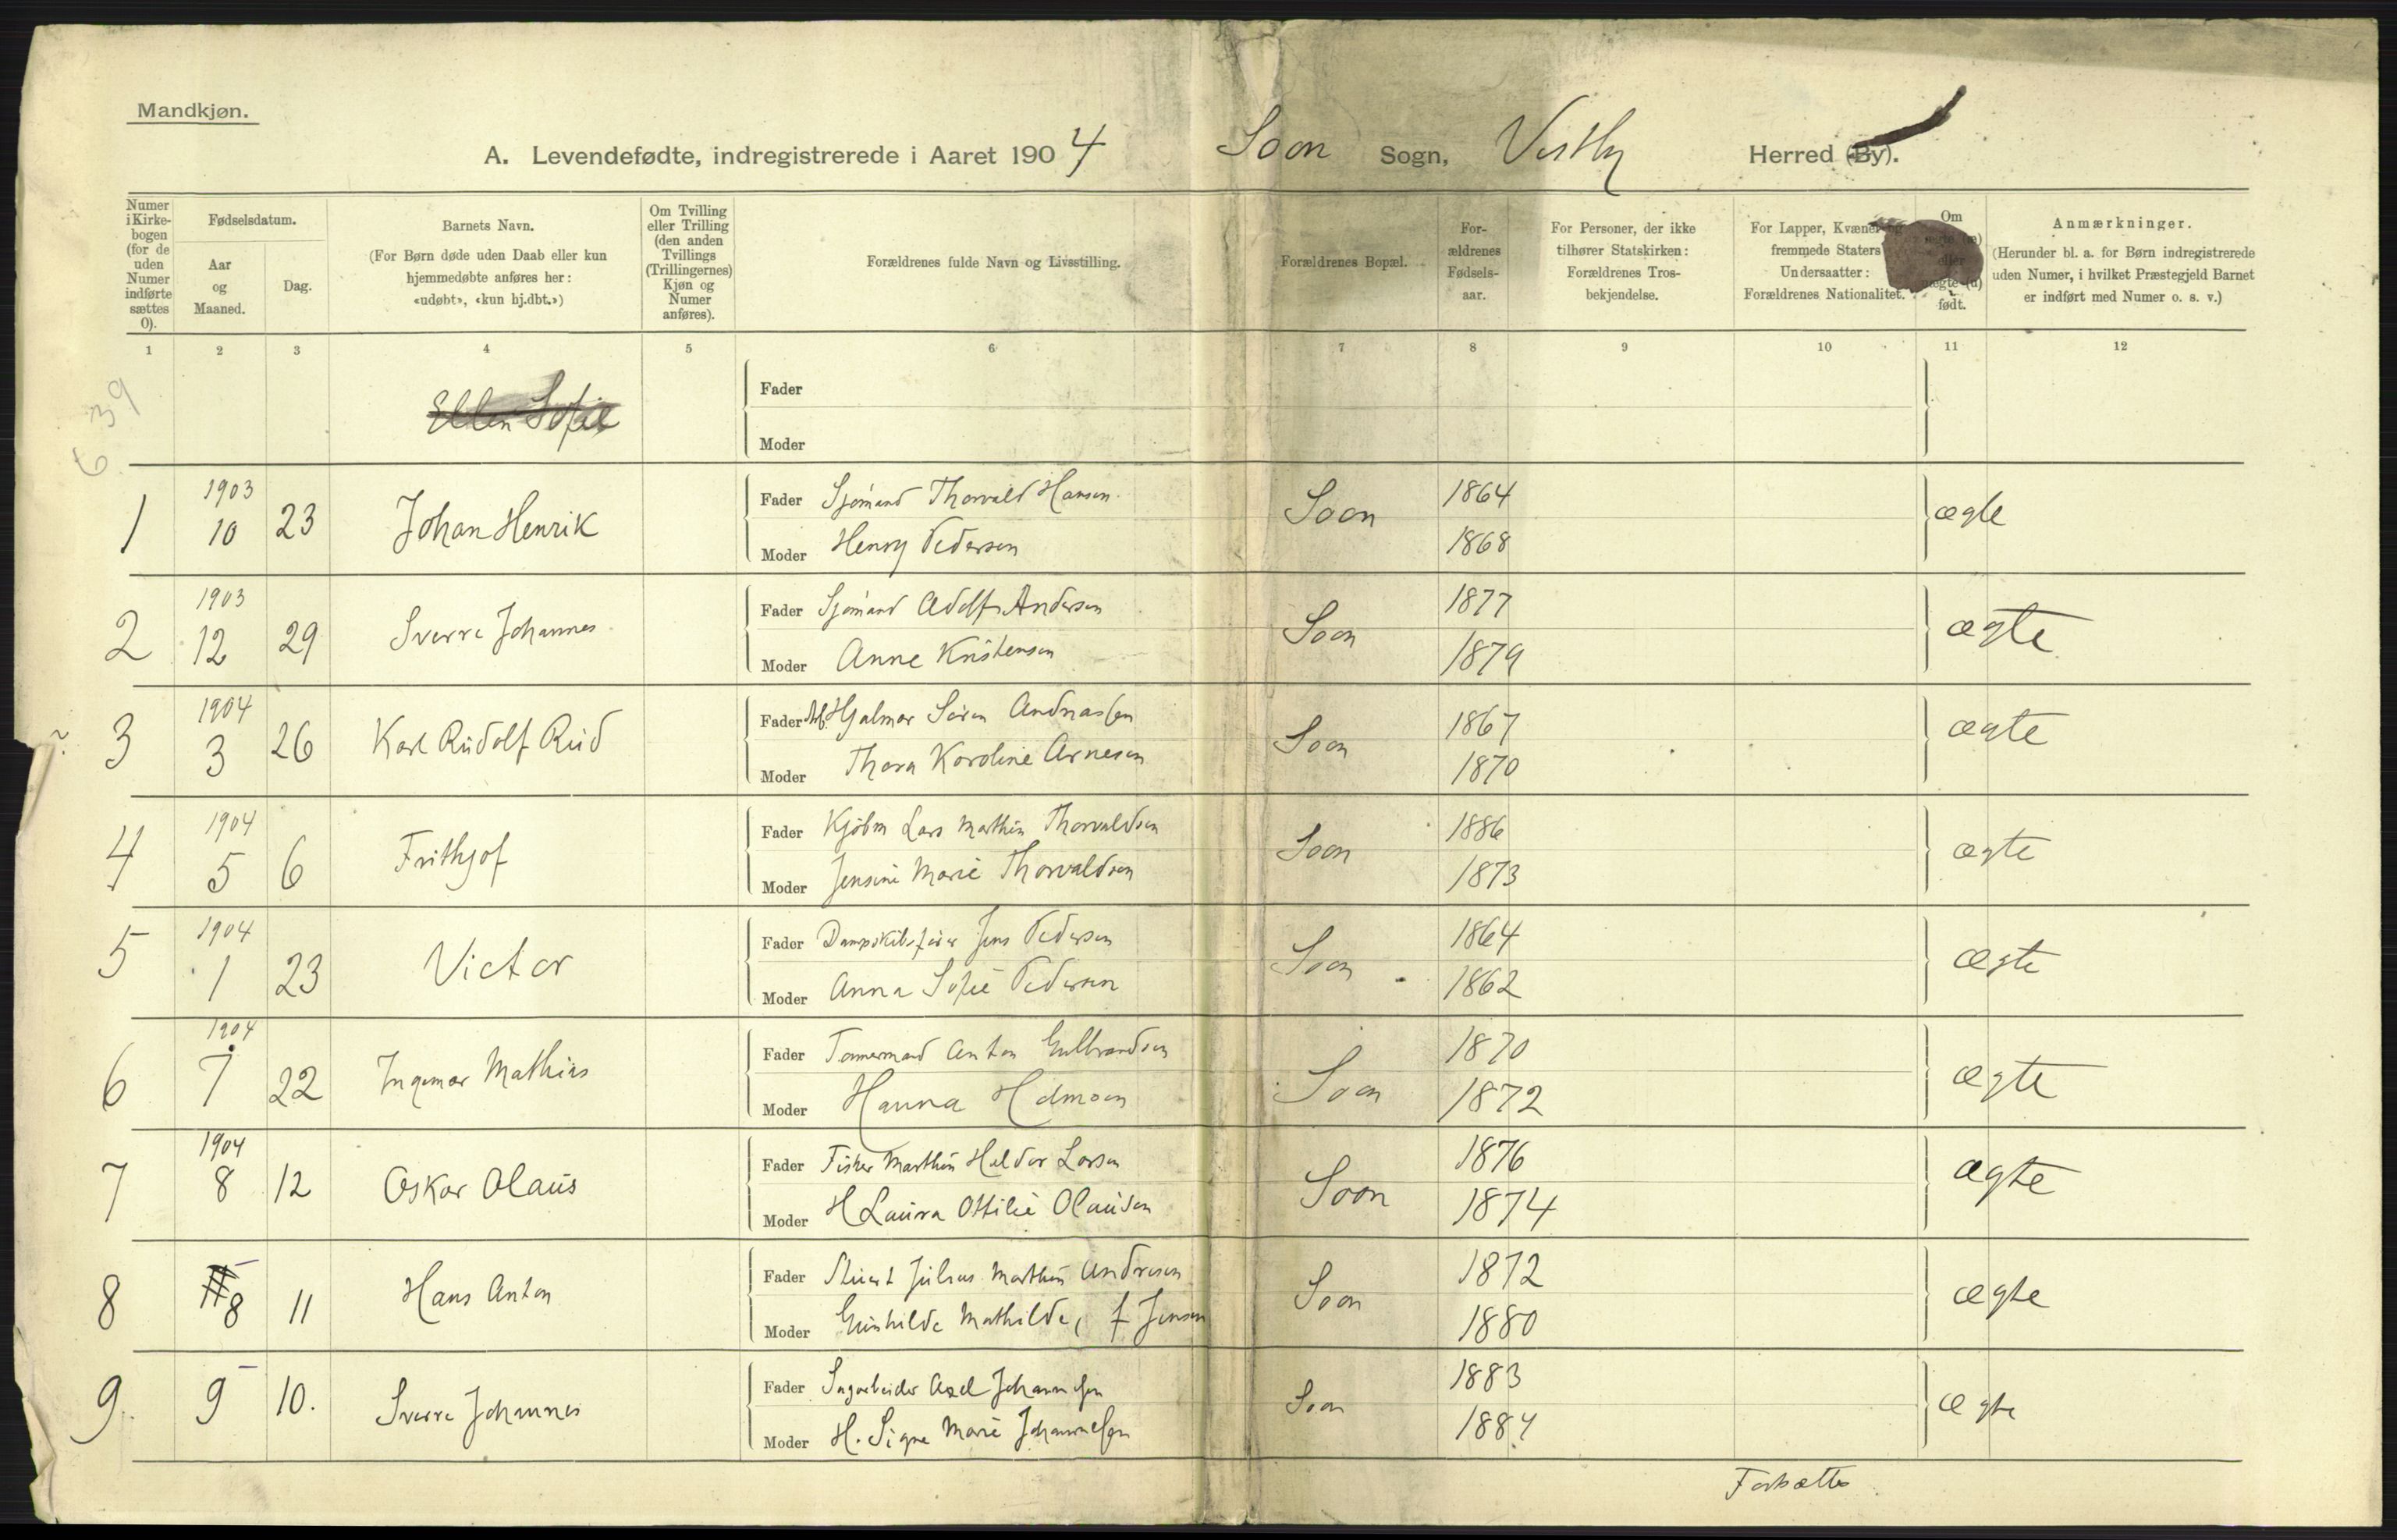 Mandkjøn.
A. Levendefødte, indregistrerede i Aaret 1904 Soon Sogn, Vestby Herred (By).
Numer i Kirkebogen (for de uden Numer indførte sættes 0).
Fødselsdatum.
Aar og Maaned.
Dag.
Barnets Navn.
(For Børn døde uden Daab eller kun hjemmedøbte anføres her: «udøbt», «kun hj.dbt.»)
Om Tvilling eller Trilling (den anden Tvillings (Trillingernes) Kjøn og Numer anføres).
Forældrenes fulde Navn og Livsstilling.
Forældrenes Bopæl.
Forældrenes Fødselsaar.
For Personer, der ikke tilhører Statskirken: Forældrenes Trosbekjendelse.
For Lapper, Kvæner og fremmede Staters Undersaatter: Forældrenes Nationalitet.
Om ægte (æ) eller uægte (u) født.
Anmærkninger.
(Herunder bl. a. for Børn indregistrerede uden Numer, i hvilket Præstegjeld Barnet er indført med Numer o. s. v.)
1 2 3 4 5 6 7 8 9 10 11 12
639
Ellen Sofie
Fader
Moder
1 1903 10 23 Johan Henrik
Fader Sjømand Thorvald Hansen Soon 1864 ægte
Moder Henny Pedersen 1868
2 1903 12 29 Sverre Johannes
Fader Sjømand Adolf Andersen Soon 1877 ægte
Moder Anne Kristensen 1879
3 1904 3 26 Karl Rudolf Rud
Fader Arb. Hjalmar Søren Andreassen Soon 1867 ægte
Moder Thora Karoline Arnesen 1870
4 1904 5 6 Frithjof
Fader Kjøbm Lars Mathin Thorvaldsen Soon 1886 ægte
Moder Jensine Marie Thorvaldsen 1873
5 1904 1 23 Victor
Fader Dampskibsfører Jens Pedersen Soon 1864 ægte
Moder Anna Sofie Pedersen 1862
6 1904 7 22 Ingemar Mathias
Fader Tømmermand Anton Gulbrandsen Soon 1870 ægte
Moder Hanna 1872
7 1904 8 12 Oskar Olaus
Fader Fisker Marthin Haldor Larsen Soon 1876 ægte
Moder H Laura Ottilie Olausen 1874
8 8 11 Hans Anton
Fader Julius Marthin Andresen Soon 1872 ægte
Moder Gunhilde Mathilde, f Jensen 1880
9. 9 10. Sverre Johannes
Fader Sagarbeider Axel Johannessen Soon 1883 ægte
Moder H. Signe Marie Johannessen 1884
Forsættes